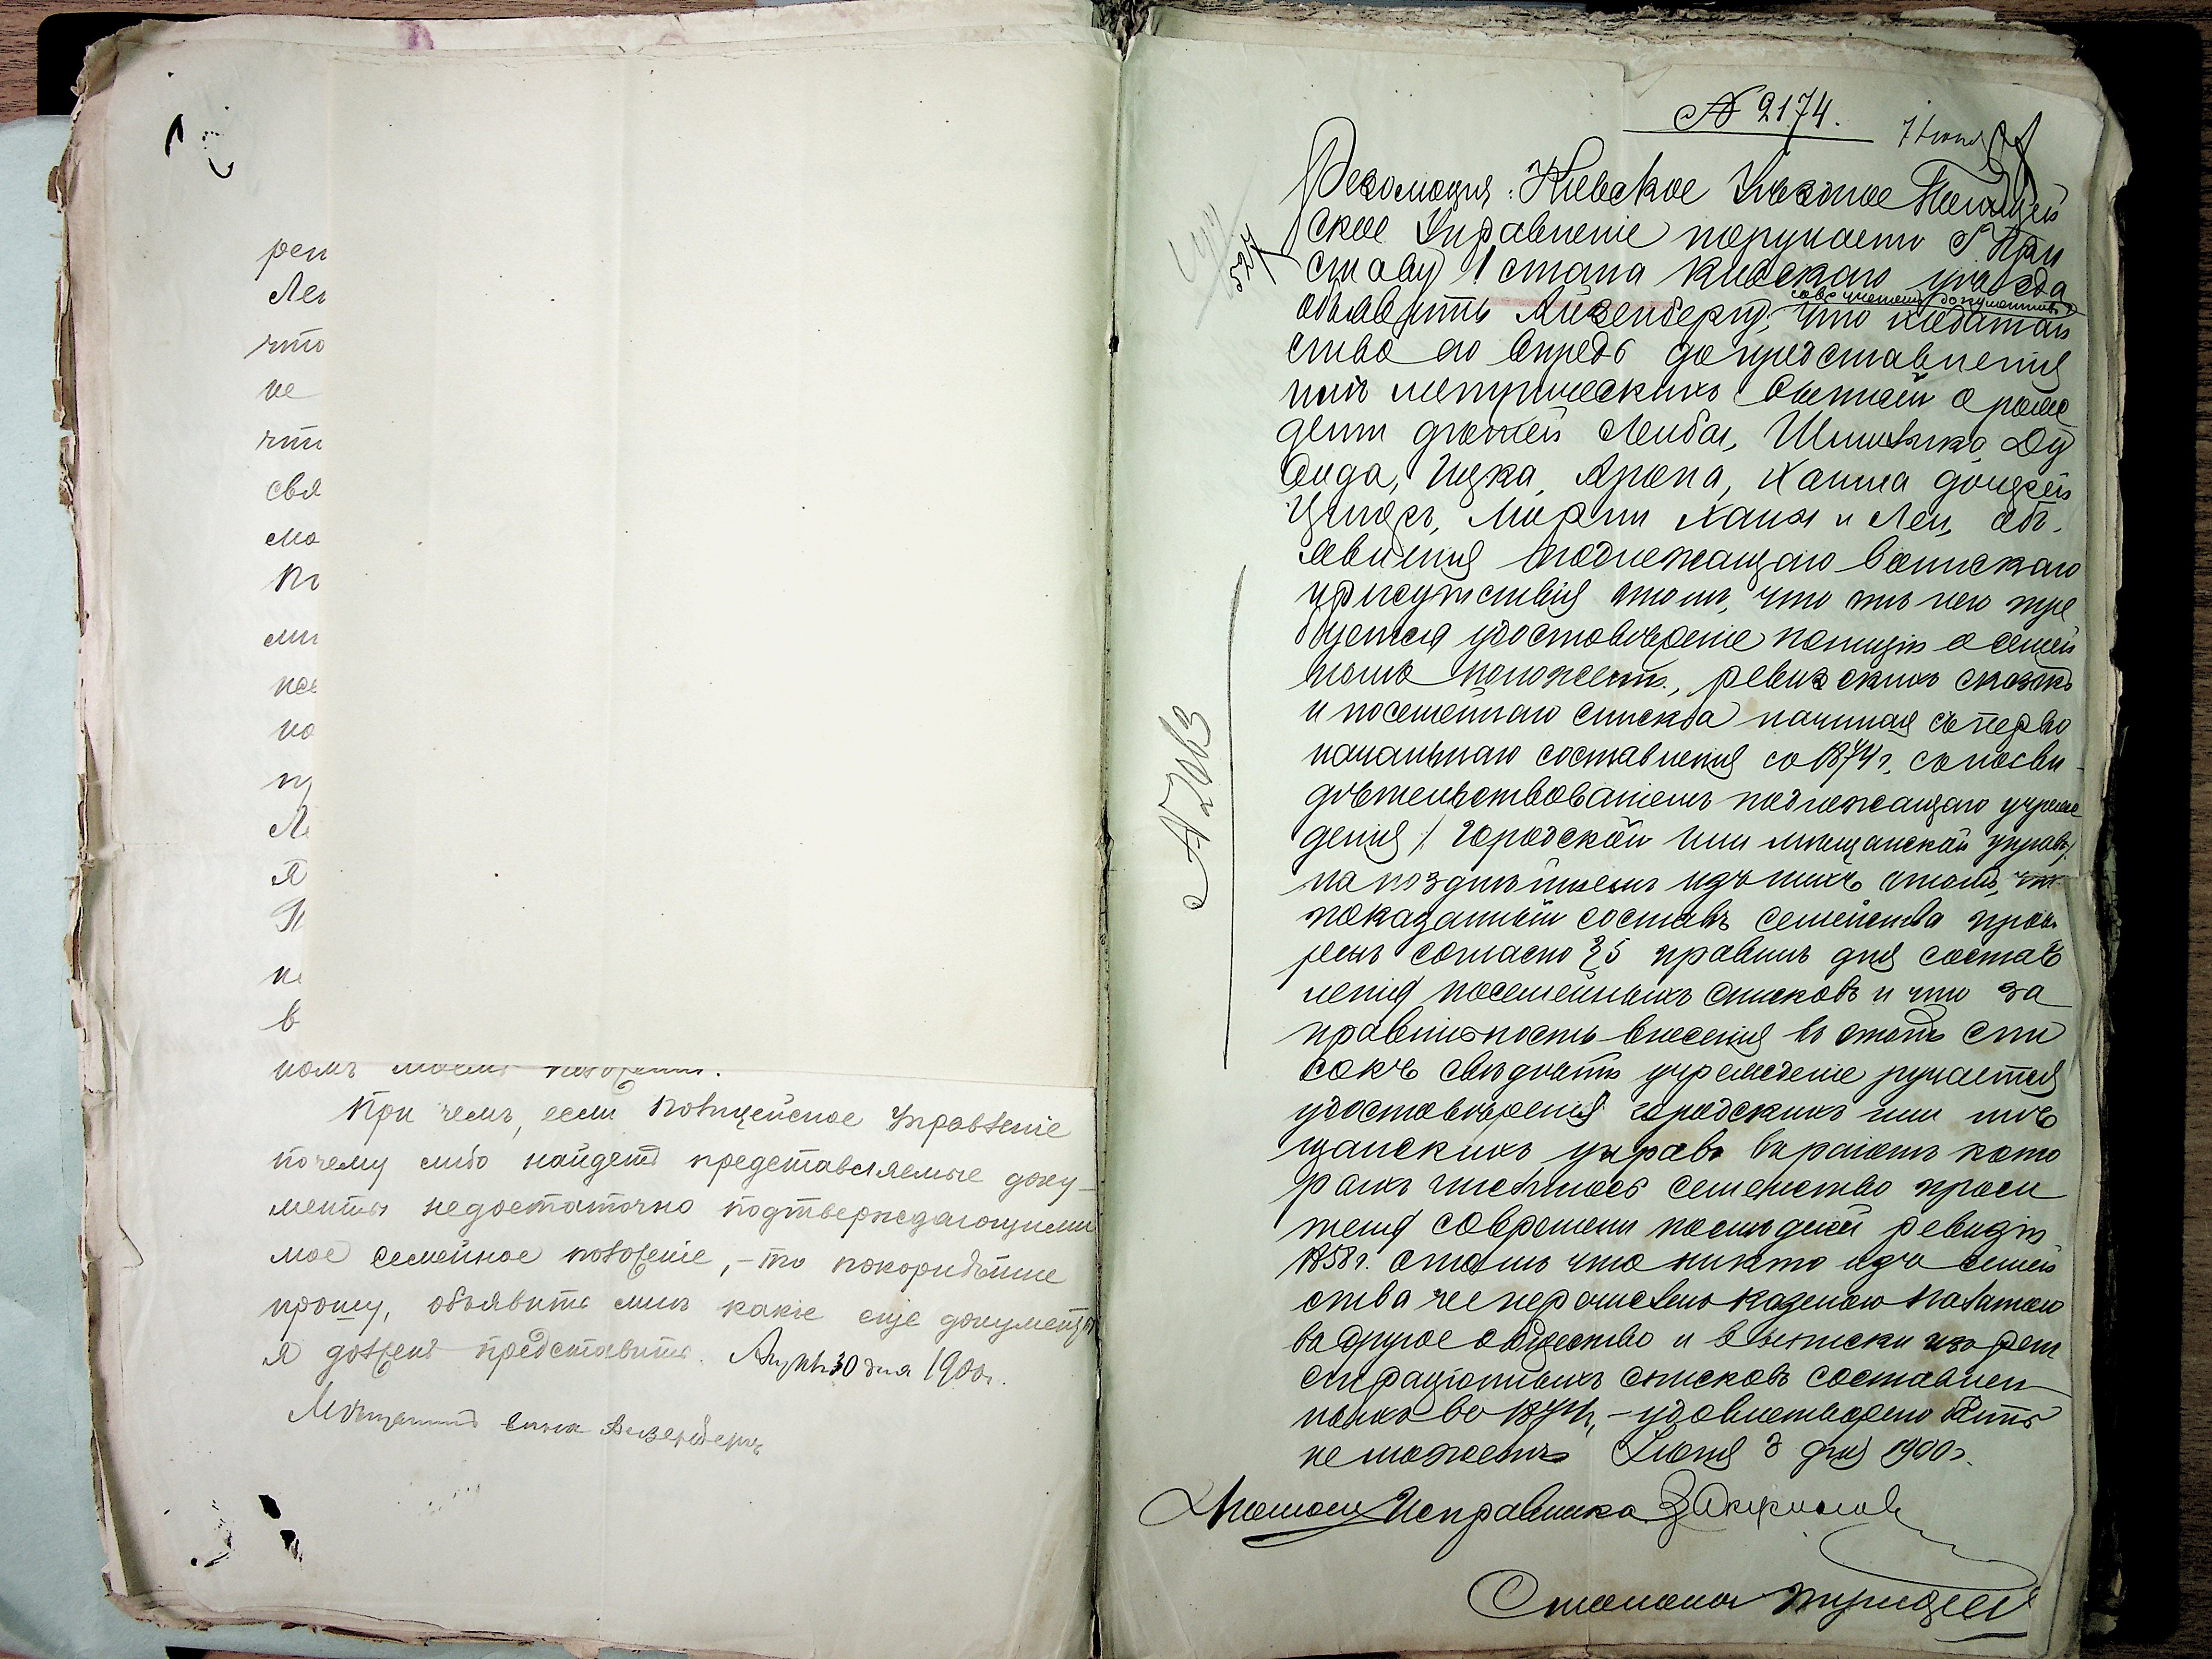 реп
Лег
что
не
что
свя
мо
по
ми
пос
но
пу
Ле
Я
По
не
в
номъ моемъ положеніи.
При чемъ, если Полицейское Управленіе
почему либо найдетъ представляемые доку-
менты недостаточно подтверждающими
мое семейное положеніе, - то покорнѣйше
прошу, объявить мнѣ какіе еще документы
я долженъ представить. Апрѣль 30 дня 1900г.
Мѣщанинъ Айзенбергъ
№ 2174.
7 Іюня
527
№ 2063
Резолюція: Кіевское Уѣздное Полицей
ское Управленіе поручаетъ Г. При
ставу 1 стана Кіевскаго уѣзда
объявить Айзенбергу, что ходатай
ство его впредь до представленія
имъ метрическихъ выписей о рож
деніи дѣтей Лейбы, Ду
вида, Ицка, Арона, Хаима дочерей
Ципры, Хаи и Леи, объ-
явленія подлежащаго воинскаго
присутствія о томъ, что отъ него тре
буется удостовѣреніе полиціи о семей
номъ положеніи, ревизскихъ сказокъ
и посемейнаго списка начиная съ перво
начальнаго составленія со 1874 г. съ посви-
дѣтельствованіемъ подлежащаго учреж
денія /: городской или мѣщанской управъ/
на позднѣйшемъ изъ нихъ о томъ, что
показанный составъ семейства провѣ
ренъ согласно § 5 правилъ для состав
ленія посемейныхъ списковъ и что за
правильность внесенія въ этотъ спи
сокъ свѣдѣній учрежденіе ручается
удостовѣренія городскихъ или мѣ
щанскихъ управъ въ раіонѣ кото
рыхъ числилось семейство проси
теля со времени послѣдней ревизіи
1858 г. о томъ что никто изъ семей
ства не перечисленъ казенною палатою
въ другое общество и выписки изъ реги
страціонныхъ списковъ составлен
ныхъ въ 1874 г, - удовлетворено быть
не можетъ Іюня 3 дня 1900г.
Помощ. Исправника